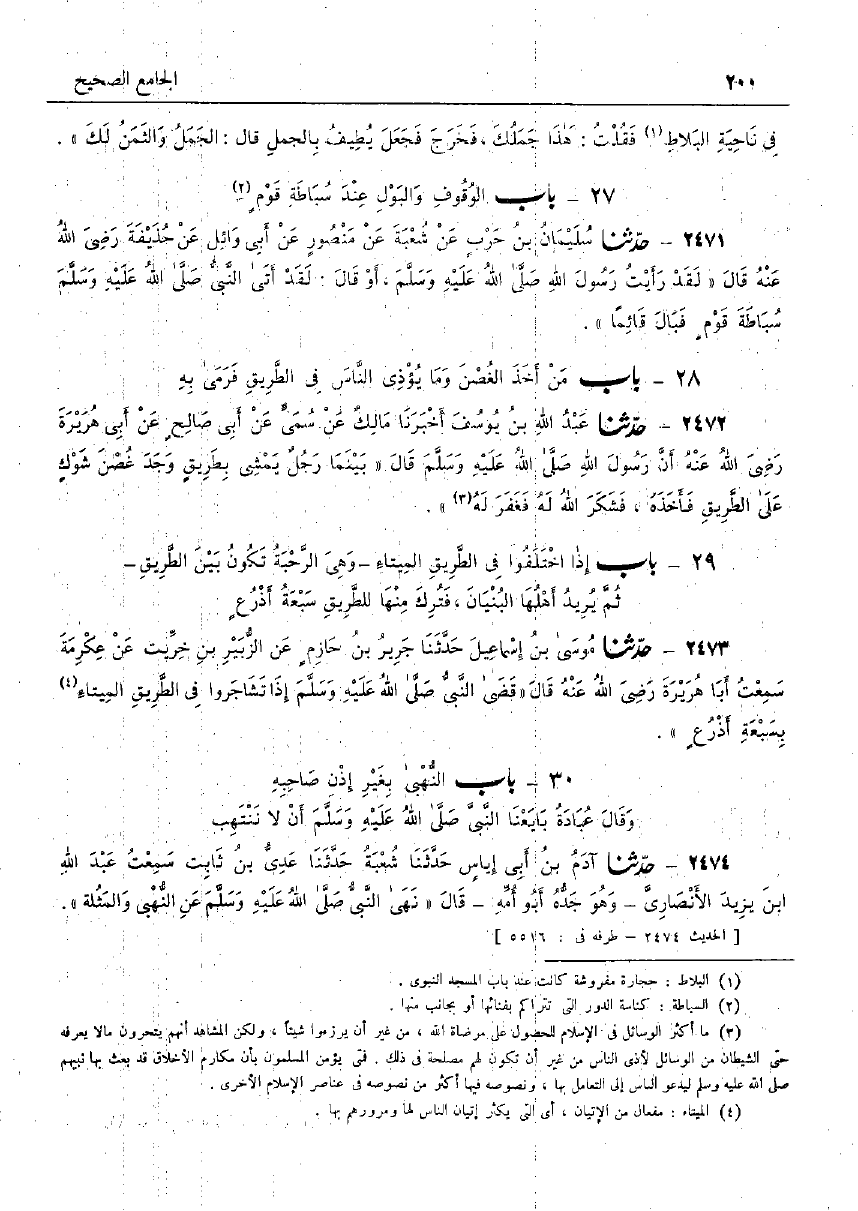 ٢٠٠ الجامع الصحيح
فِى نَاحِيَةِ البَلاطِ(١) فَقُلْتُ : هٰذَا جَمَلُكَ ، فَخَرَجَ فَجَعَلَ يُطِيفُ بِالجملِ قال : الجَمَلُ وَالثَّمَنُ لَكَ » .
٢٧ – باب الوُقُوفِ وَالبَوْلِ عِنْدَ سُبَاطَةِ قَوْمٍ(٢)
٢٤٧١ – حدّثنا سُلَيْمَانُ بنُ حَرْبٍ عَنْ شُعْبَةَ عَنْ مَنْصُورٍ عَنْ أَبِى وَائِلٍ عَنْ حُذَيْفَةَ رَضِىَ اللهُ
عَنْهُ قَالَ « لَقَدْ رَأَيْتُ رَسُولَ اللهِ صَلَّى اللهُ عَلَيْهِ وَسَلَّمَ ، أَوْ قَالَ : لَقَدْ أَتَىٰ النَّبِىُّ صَلَّى اللهُ عَلَيْهِ وَسَلَّمَ
سُبَاطَةَ قَوْمٍ فَبَالَ قَائِمًا » .
٢٨ – باب مَنْ أَخَذَ الغُصْنَ وَمَا يُؤْذِى النَّاسَ فِى الطَّرِيقِ فَرَمَىٰ بِهِ
٢٤٧٢ – حدّثنا عَبْدُ اللهِ بنُ يُوسُفَ أَخْبَرَنَا مَالِكٌ عَنْ سُمَىٍّ عَنْ أَبِى صَالِحٍ عَنْ أَبِى هُرَيْرَةَ
رَضِىَ اللهُ عَنْهُ أَنَّ رَسُولَ اللهِ صَلَّى اللهُ عَلَيْهِ وَسَلَّمَ قَالَ « بَيْنَمَا رَجُلٌ يَمْشِى بِطَرِيقٍ وَجَدَ غُصْنَ شَوْكٍ
عَلَىٰ الطَّرِيقِ فَأَخَذَهُ ، فَشَكَرَ اللهُ لَهُ فَغَفَرَ لَهُ(٣) » .
٢٩ – باب إِذَا اخْتَلَفُوا فِى الطَّرِيقِ المِيتاءِ – وَهِىَ الرَّحْبَةُ تَكُونُ بَيْنَ الطَّرِيقِ –
ثُمَّ يُرِيدُ أَهْلُهَا البُنْيَانَ ، فَتُرِكَ مِنْهَا للطَّرِيقِ سَبْعَةُ أَذْرُعٍ
٢٤٧٣ – حدّثنا مُوسَىٰ بنُ إِسْمَاعِيلَ حَدَّثَنَا جَرِيرُ بنُ حَازِمٍ عَنِ الزُّبَيْرِ بنِ خِرِّيتٍ عَنْ عِكْرِمَةَ
سَمِعْتُ أَبَا هُرَيْرَةَ رَضِىَ اللهُ عَنْهُ قَالَ « قَضَىٰ النَّبِىُّ صَلَّى اللهُ عَلَيْهِ وَسَلَّمَ إِذَا تَشَاجَروا فِى الطَّرِيقِ المِيتاءِ(٤)
بِسَبْعَةِ أَذْرُعٍ » .
٣٠ – باب النُّهْبىٰ بِغَيْرِ إِذْنِ صَاحِبِهِ
وَقَالَ عُبَادَةُ بَايَعْنَا النَّبِىَّ صَلَّى اللهُ عَلَيْهِ وَسَلَّمَ أَنْ لا نَنْتَهِب
٢٤٧٤ – حدّثنا آدَمُ بنُ أَبِى إِياسٍ حَدَّثَنَا شُعْبَةُ حَدَّثَنَا عَدِىُّ بنُ ثَابِتٍ سَمِعْتُ عَبْدَ اللهِ
ابنَ يزِيدَ الأَنْصَارِىَّ – وَهُوَ جَدُّهُ أَبُو أُمِّهِ – قَالَ « نَهَىٰ النَّبِىُّ صَلَّى اللهُ عَلَيْهِ وَسَلَّمَ عَنِ النُّهْبى وَالمَثُلة » .
[ الحديث ٢٤٧٤ – طرفه فى : ٥٥١٦ ]
(١) البلاط : حجارة مفروشة كانت عند باب المسجد النبوى .
(٢) السباطة : كناسة الدور التى تتراكم بفنائها أو بجانب منها .
(٣) ما أكثر الوسائل فى الإسلام للحصول على مرضاة الله ، من غير أن يرزموا شيئاً ، ولكن المشاهد أنهم يتحرون مالا يعرفه
حتى الشيطان من الوسائل لأذى الناس من غير أن تكون لهم مصلحة فى ذلك . فمتى يؤمن المسلمون بأن مكارم الأخلاق قد بعث بها نبيهم
صلى الله عليه وسلم ليدعو الناس إلى التعامل بها ، ونصوصه فيها أكثر من نصوصه فى عناصر الإسلام الأخرى .
(٤) الميتاء : مفعال من الإتيان ، أى التى يكثر إتيان الناس لها ومرورهم بها .